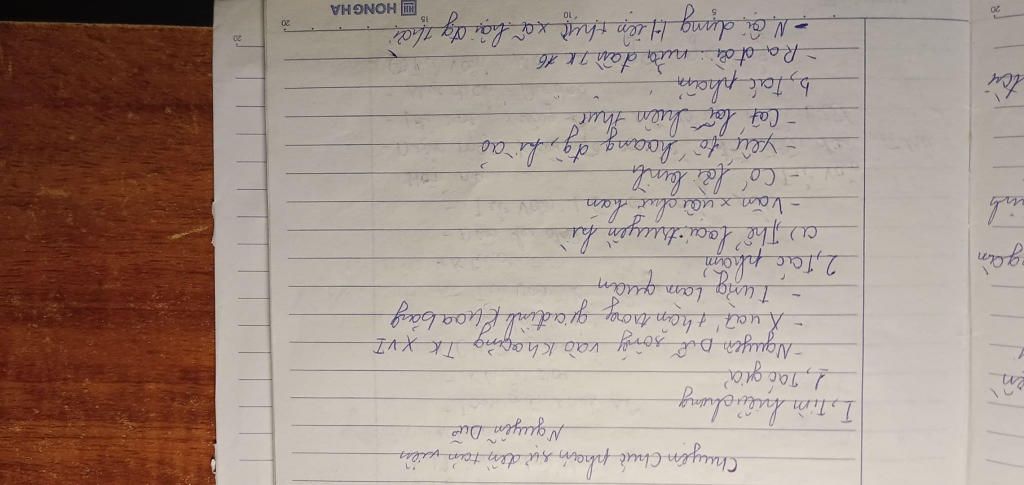 Chuyện Chức phán sự đền tản viên
Nguyễn Dữ
I, Tìm hiểu chung
1, Tác giả
- Nguyễn Dữ sống vào khoảng TK XVI
- Xuất thân trong gia đình khoa bảng
- Từng làm quan
2, Tác phẩm
a) Thể loại: truyền kì
- Văn xuôi chữ hán
- Có lời bình
- yếu tố hoang đg, kì ảo
- Cốt lõi hiện thực
b, Tác phẩm
- Ra đời: nửa đầu TK 16
- Nội dung Hiện thực xã hội đg thời
HONG HA
5 10 15 20
20
20